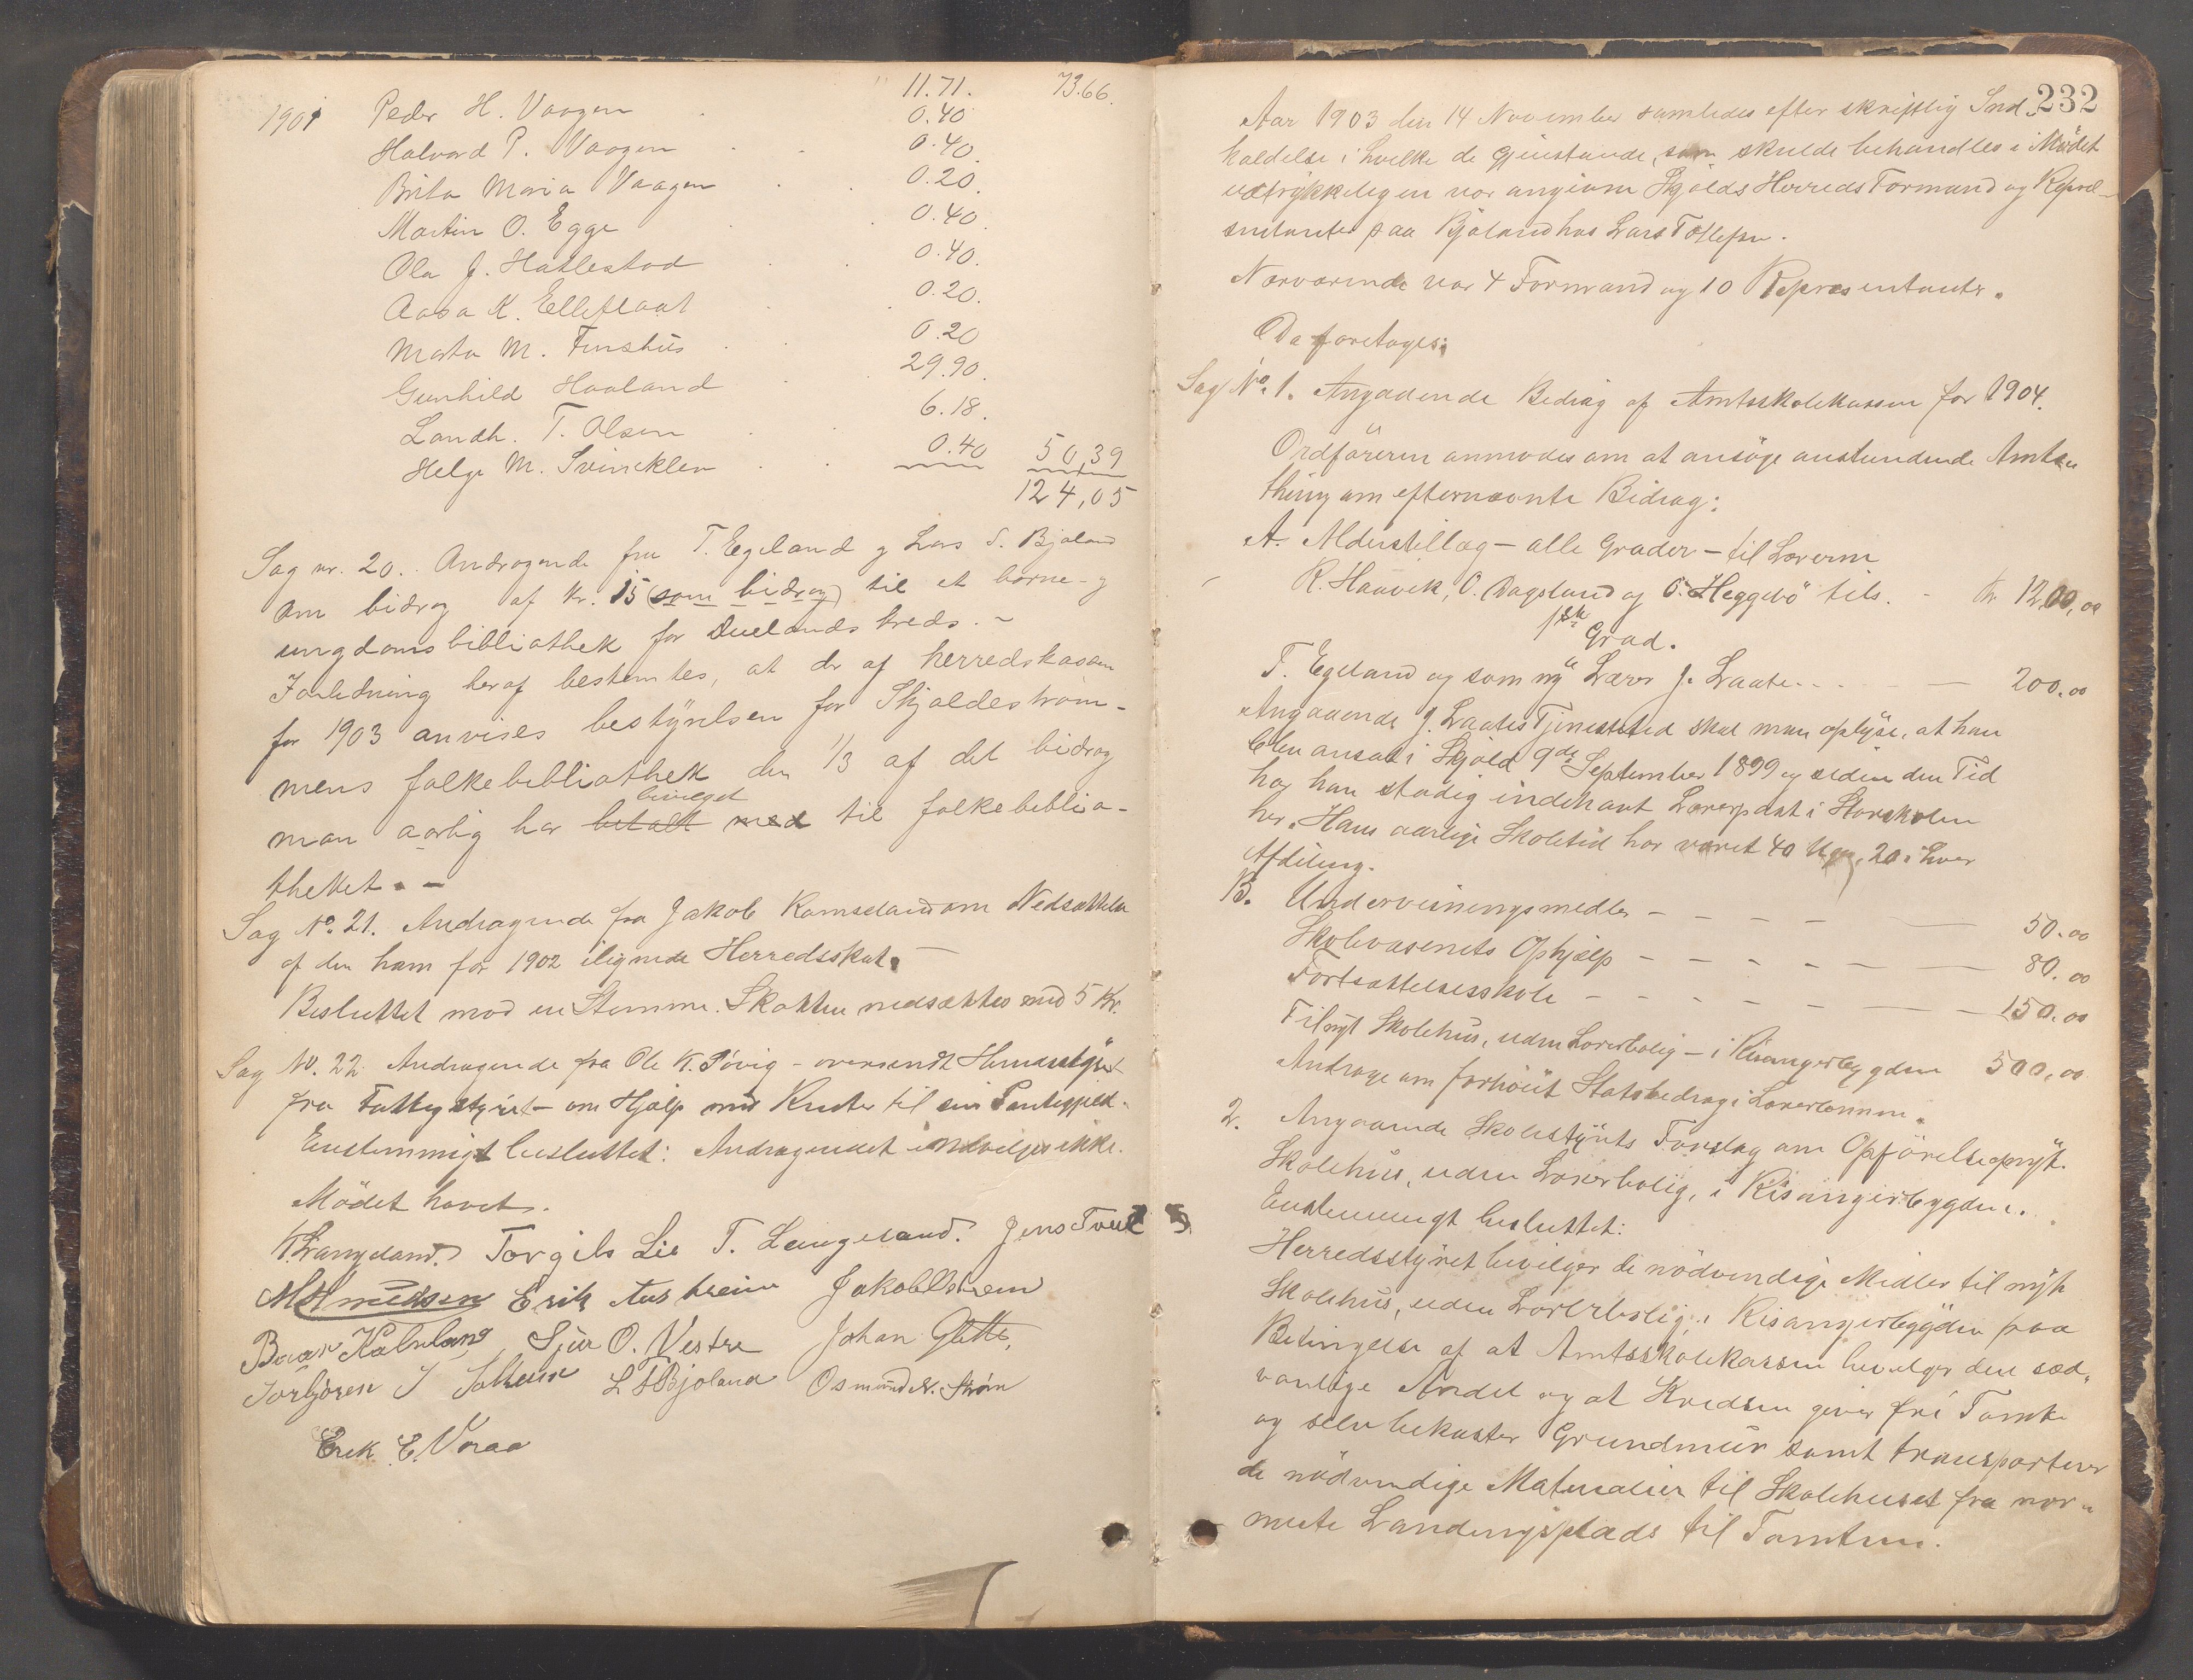 11.71. 73.66.
1901 Peder H. Vaagen . 0.40
Halvard P. Vaagen . . 0.40.
Brita Maria Vaagen . . 0.20.
Martin O. Egge . . 0.40.
Ola J. Hatlestad . . 0.40.
Aasa K. Elleflaat . . 0.20.
Marta M. Finshus . . 0.20
Gunhild Haaland . . 29.90.
Landh. T. Olsen . . 6.18.
Helge M. Svinseklen . . 0.40 50,39
124,05
Sag nr. 20. Andragende fra T. Egeland g Lars T. Bjoland
om bidrag af kr. 15 (som bidrag) til et barne- g
ungdomsbibliothek for Duelands kreds. –
I anledning heraf bestemtes, at der af herredskassen
for 1903 anvises bestyrelsen for Skjoldestrøm-
mens folkebibliothek den 1/3 af det bidrag
bevilget
man aarlig har betalt med til folkebiblio-
theket. –
Sag No. 21. Andragende fra Jakob Ramseland om Nedsættelse
af den ham for 1902 ilignede Herredsskat. –
Besluttet mod en Stemme. Skatten nedsættes med 5 Kr.
Sag No. 22. Andragende fra Ole K. Søvig – oversendt Herredsstyret
fra Fattigstyret – om Hjælp med Renter til sin Pantegjeld.
Enstemmigt besluttet: Andragendet indvilges ikke.
Mödet hævet.
K. Langeland. Torgils Lie T. Langeland. Jens Tveit
M. Amundsen Erik Austreim Jakob Ilstrem
Baar Kalveland Sjur O. Vestre Johan Glette,
Torbjøren J Solheim L T Bjoland Osmund N. Strøm
Erek E. Voraa
232
Aar 1903 den 14 November samledes efter skriftlig Ind-
kaldelse i hvilke de Gjenstande, som skulde behandles i Mödet
udtrykkeligen var angivne Skjolds Herreds Formænd og Repræ-
sentanter paa Bjoland hos Lars Tollefsen.
Nærværende var 4 Formænd og 10 Repræsentanter.
Da foretoges:
Sag No. 1. Angaaende Bedrag af Amtsskolekassen for 1904.
Ordföreren anmodes om at ansöge anstundende Amts-
thing om efternævnte Bidrag:
A. Alderstillæg – alle Grader – til Lærerne
R. Haavik, O. Dagsland og O. Heggebö tils. – Kr. 1200,00
1ste Grad.
T. Egeland og som ny Lærer J. Laate. . . – – 200.00
Angaaende J. Laates Tjenestetid skal man oplyse, at han
blev ansat i Skjold 9de September 1899 og siden den Tid
har han stadig indehavt Lærerpost i Storskolen
her. Hans aarlige Skoletid har været 40 Uger, 20 i hver
Afdeling.
B. Undervisningsmidler – – – – – 50.00
Skolevæsenets Ophjælp – – – – – – 80.00
Fortsættelsesskole – – – – – – – 150.00
Til nyt Skolehus, uden Lærerbolig – i Risangerbygden 500,00
Andrage om forhöiet Statsbedrag i Lærerlønnen.
2. Angaaende Skolestyrets Forslag om Opförelse af nyt
Skolehus, uden Lærerbolig, i Risangerbygden.
Enstemmigt besluttet:
Herredsstyret bevilger de nödvendige Midler til nyt
Skolehus, uden Lærerbolig, i Risangerbygden paa
Betingelse af at Amtsskolekassen bevilger den sæd-
vanlige Andel og at Kredsen giver fri Tomt
og selv bekoster Grundmur samt transporterer
de nödvendige Materialier til Skolehuset fra nær-
meste Landingsplads til Tomten.